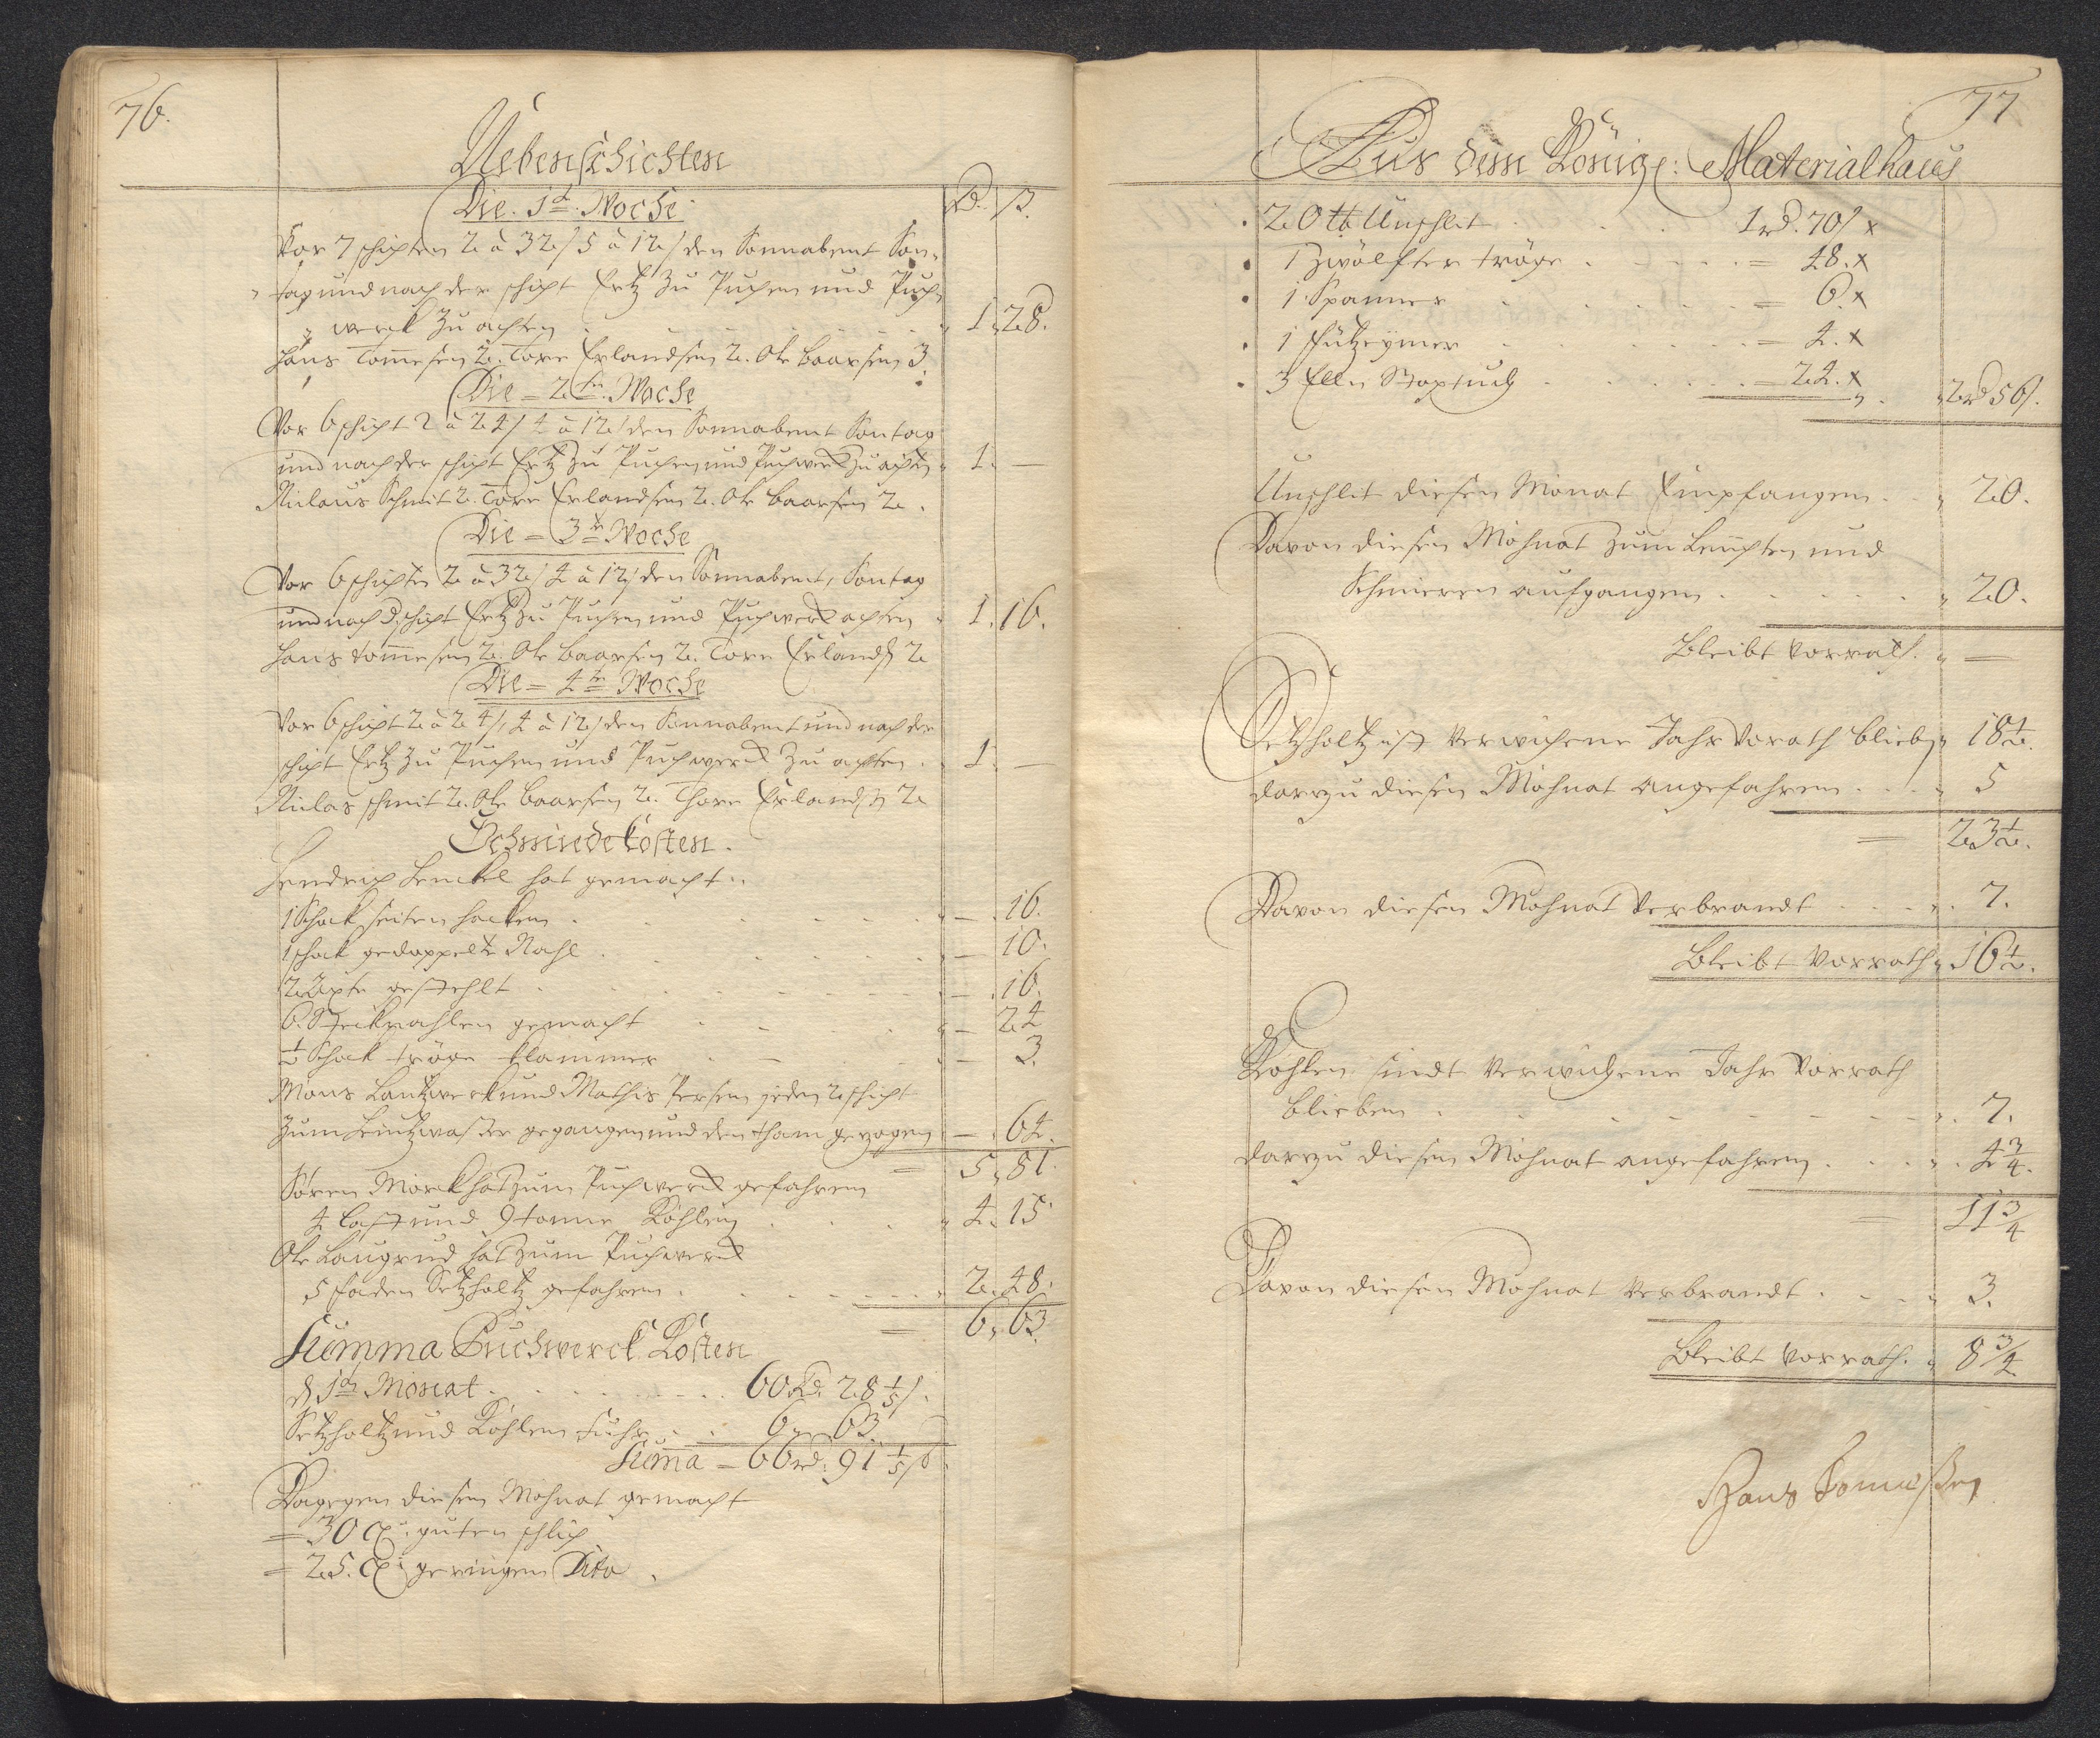 76.
Nebenschichten
Die. 1te. Woche
Rd. ß.
Vor 7 schichten 2 à 32/ 5 à 12/ den Sonnabent Son-
tag und nach der schicht Ertz zu Puchen und Puch
werck zu achten 1. 28.
Hans Tomesen 2. Tore Erlandsen 2. Ole Baarsen 3.
Die = 2te. Woche
Vor 6 schicht 2 à 24/ 4 à 12/ den Sonnabent Sontag
und nach der schicht Ertz zu Puchen und Puchwerck zu achten 1. —
Niclaus Schmit 2. Tore Erlandsen 2. Ole Baarsen 2.
Die = 3te Woche
Vor 6 schichten 2 à 32/ 4 à 12/ den Sonnabent, Sontag
und nach d. schicht Ertz zu Puchen und Puchwerck achten 1. 16.
Hans Tomesen 2. Ole Baarsen 2. Tore Erlands 2
Die = 4te Woche
Vor 6 schicht 2 à 24/, 4 à 12/ den Sonnabent und nach der
schicht Ertz zu Puchen und Puchwerck zu achten 1. —
Niclas schmit 2. Ole Baarsen 2. Thore Erlandsen 2
Schmiede kosten.
Hendrich Henckel hat gemacht..
1 Schock seiten hacken — 16.
1 schock gedoppelte Nahl — 10.
2 Äxte gestehlt — 16.
6. Steckpahlen gemacht — 24
½ Schock tröge klammer — 3.
Mons Lantzwerk und Mathis Persen jeden 2 schicht
zum gegangen und den tham gezogen — 64.
= 5. 81.
Sören Morck hat zum Puchwerck gefahren
4 Last und 9 tonne Kohlen 4. 15
Ole Laugrud hat zum Puchwerck
5 faden Setzholtz gefahren 2. 48.
= 6. 63.
Summa Puchwerck Kosten
d 1te Monat 60 Rd. 28 1/5 /.
Setzholtz und Kohlen fuhr 6 „ 63.
Suma = 66 rd. 91 1/5 ß
Dagegen diesen Mohnat gemacht
= 30 guten schlich
= 25. geringen Dito.
77
Aus dem Königl: Materialhaus
20 ℔ Unschlit 1 rd. 70/ x
1 Zwölfter tröge = 48. x
1 Spanner = 6. x
1 Fützeymer = 4. x
3 Elln Stoptuch = 24. x 2 rd 56/.
Unschlit diesen Monat Empfangen 20.
Davon diesen Mohnat zum Leuchten und
Schmieren aufgangen 20.
Bleibt Vorrath. —
Setzholtz ist verwichene Jahr Vorath bliebn 18½.
darzu diesen Mohnat angefahren 5
= 23½.
Davon diesen Mohnat Verbrandt 7.
Bleibt Vorrath 16½.
Kohlen sindt Verwichene Jahr Vorrath
blieben 7.
darzu diesen Mohnat angefahren 4¾.
= 11¾
Davon diesen Mohnat Verbrandt 3.
Bleibt Vorrath. 8¾.
Hans Tomeßen